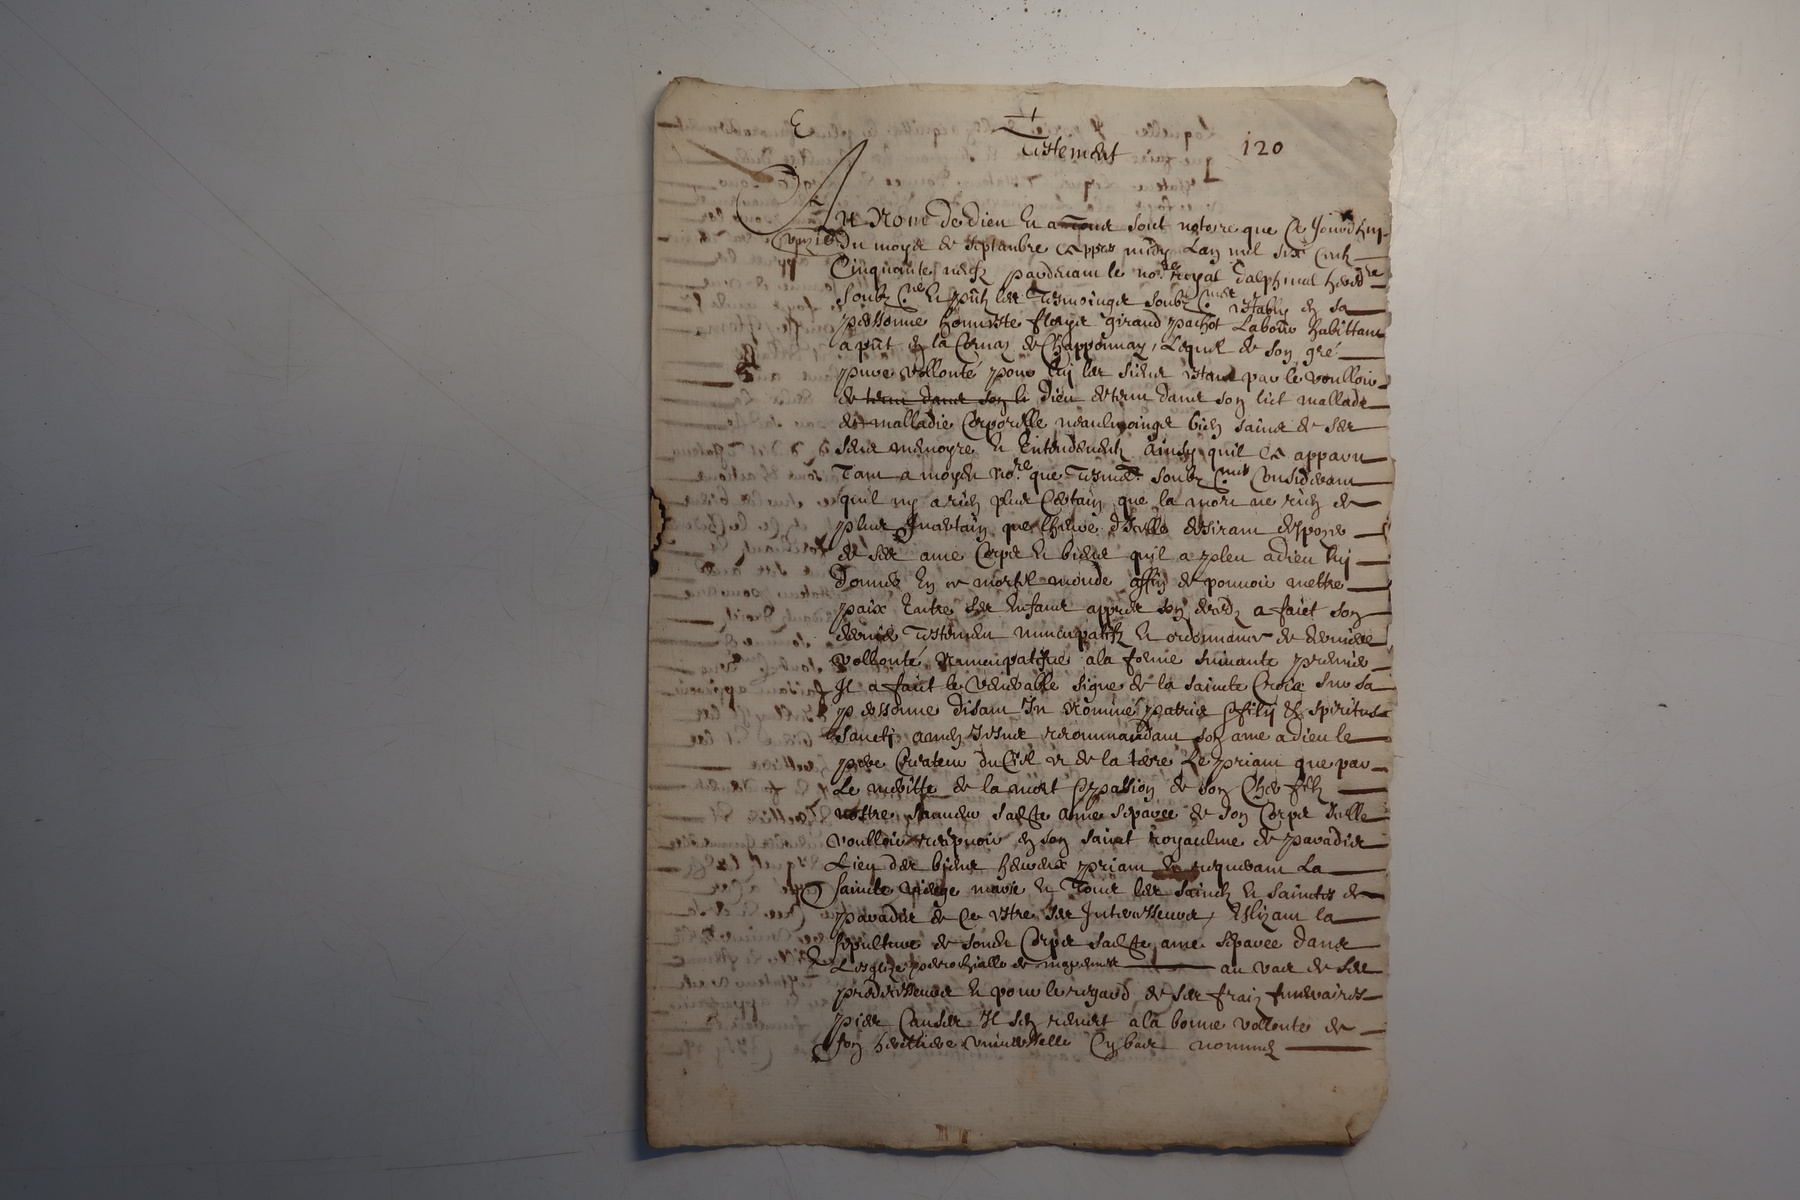 Testement
120
Au Nom de dieu En a tous soict notoire que Ce Jourdhuy
du moys de septanbre appres midy Lan mil six Cent
Cinquante neufz pardevant le no.re royal dalphinal hered.re
soubz Cne en pnt les Tesmoingz soubz Cnes estably en sa
personne honneste girand pachot Labour habittant
a pnt en la Comaz de Chapponnay, Lequel de son gré
pure vollonté pour luy les siens estant par le voulloir
de dieu detenu dans son lict mallade
de malladie Corporelle neaulmoings bien saint de ses
sens memoyre en Entendement Ainsy quil est apparu
Tant a moydt No.re que Tesmo. soubz Cnes Considerant
quil ny a rien plus Certain que la mort ne rien de
plus Incertain que lheure dIcelle desirant desposer
de ses ame Corps et biens quil a pleu a dieu luy
donner En ce mortel monde affin de pouvoir mettre
paix Entre ses Enfans appres son decedz a faict son
dernier Testement nuncupatifz et ordonnance de derniere
vollonté Nuncupatifve a la forme suivante premier
Il a faict le venerable signe de la saincte Croix sur sa
personne disant In Nomine patris & filij & spiritus
sancti amen Jesus recommandant son ame a dieu le
pere Createur du Ciel et de la terre Le priant que par
Le meritte de la mort & passion de son Cher filz
nostre sauveur sadte ame separee de son Corps Icelle
voulloir recepvoir en son sainct royaulme de paradis
Lieu des biens heureux priant requerant La
saincte vierge marie et Tous les sainctz et sainctes de
paradis de Ce estre ses Intersesseurs, Eslizant la
sepulture de sondt Corps sadte ame separee dans
Lesglize parrochialle de au vas de ses
predecesseurs et pour le regard de ses frais funeraires
pies Causes Il sen remect a la bonne vollonte de
son herettiere universelle Cybas nommez